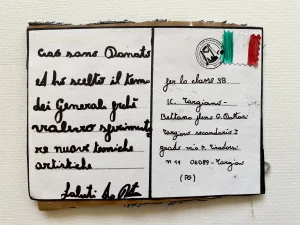 Ciao sono Donato
e ho scelto il tema
dei General perché
volevo sperimenta
re nuove tecniche
artistiche
Saluti da
per la classe 3B
IC. Torgiano-
Bettona plesso G. Dottori
Torgiano secondaria I
grado via P.
n 11 06089 - Torgiano
(PG)